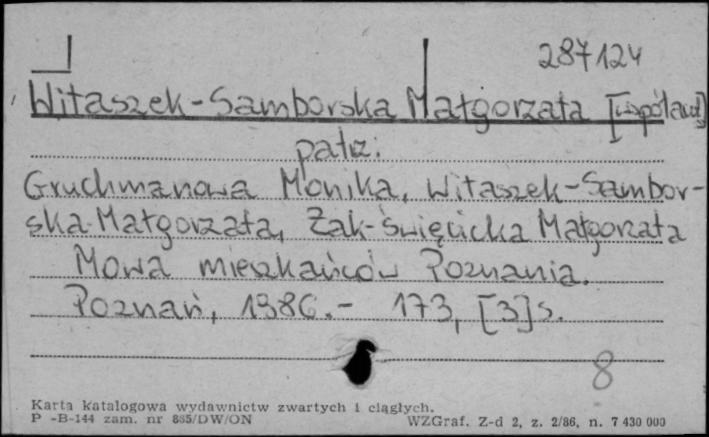 287124
Witaszek-Samborska Małgorzata [współaut]
patrz:
Gruchmanowa Monika, Witaszek-Sambor-
ska Małgorzata, Żak-Święcicka Małgorzata
Mowa mieszkańców Poznania.
Poznań, 1986.- 173, [3]s.
8
Karta katalogowa wydawnictw zwartych i ciągłych.
P-B-144 zam. nr 885/DW/ON WZGraf. Z-d 2, z. 2/86, n. 7 430 000